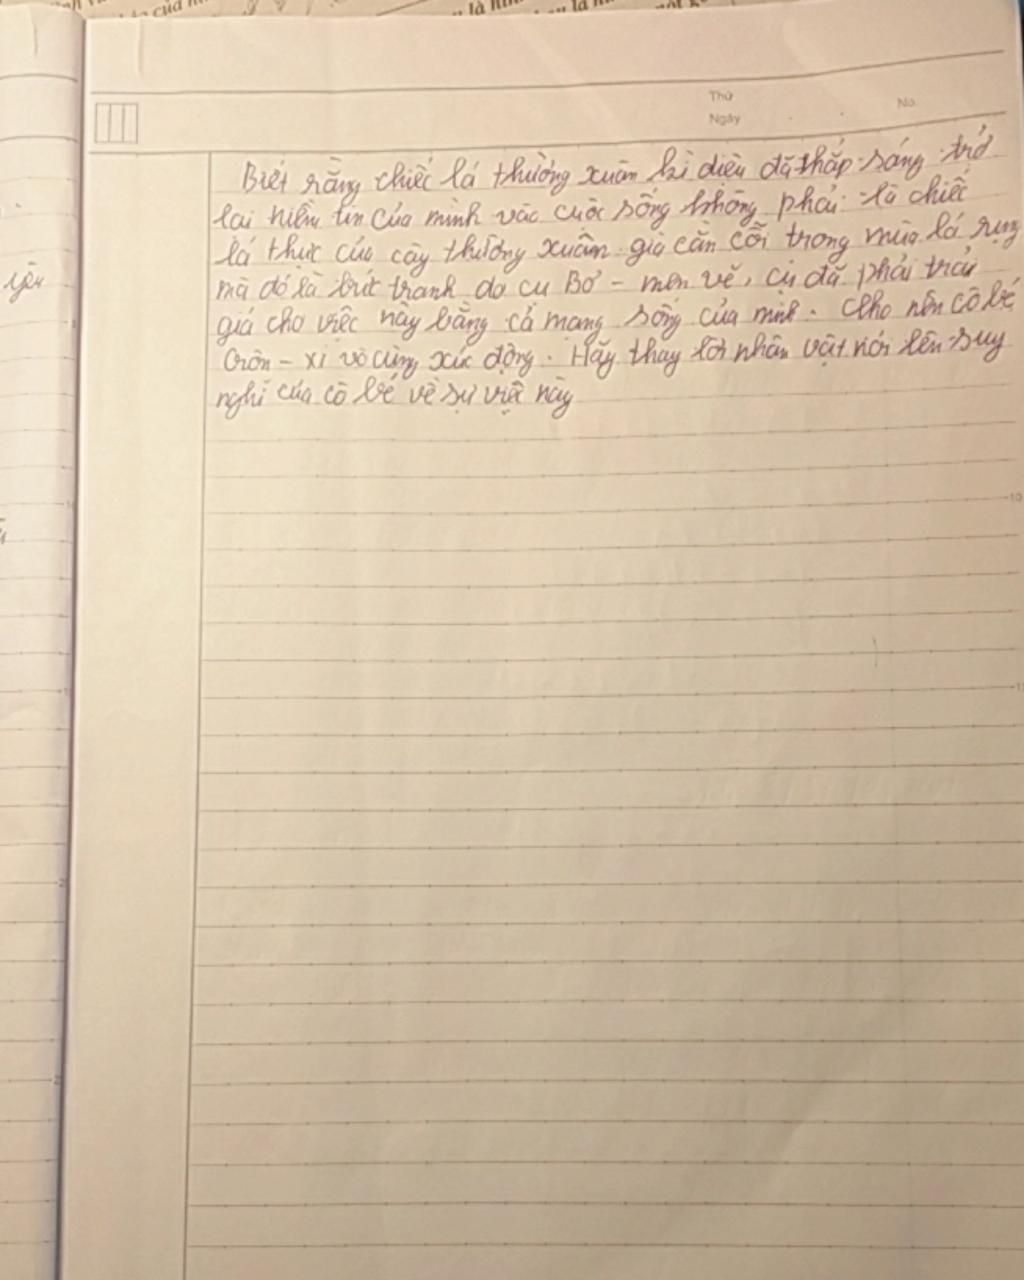 của
là
Thứ
Ngày
No.
Biết rằng chiếc lá thường xuân kì diệu đã thắp sáng trở
lại niềm tin của mình vào cuộc sống không phải là chiếc
lá thực của cây thường xuân già cằn cỗi trong mùa lá rụng
mà đó là bức tranh do cụ Bơ - men vẽ, cụ đã phải trải
giá cho việc này bằng cả mạng sống của mình. Cho nên cô bé
Giôn - xi vô cùng xúc động. Hãy thay lời nhân vật nói lên suy
nghĩ của cô bé về sự việc này
yêu
10